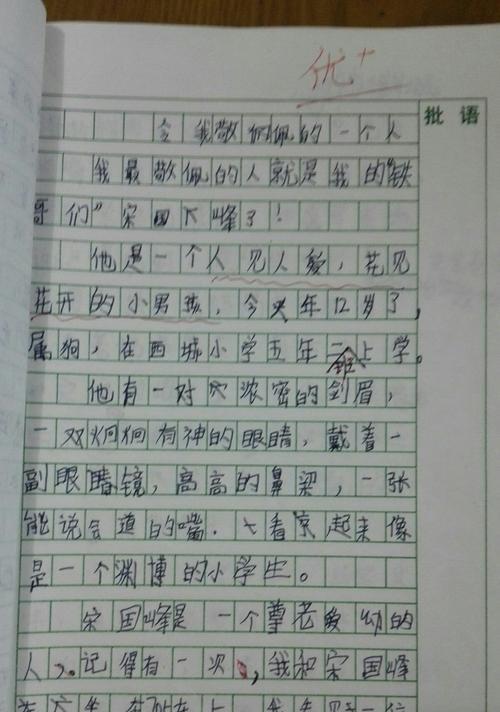 优+
批语
令我敬佩的一个人
我最敬佩的人就是我的“铁
哥们”宋国峰了！
他是一个人见人爱，花见
花开的小男孩，今年12岁了，
属狗，在西城小学五年二班上学。
他有一对浓密的剑眉，
一双炯炯有神的眼睛，戴着一
副眼睛镜，高高的鼻梁，一张
能说会道的嘴．看起来像
是一个渊博的小学生。
宋国峰是一个尊老爱幼的
人，记得有一次，我和宋国峰